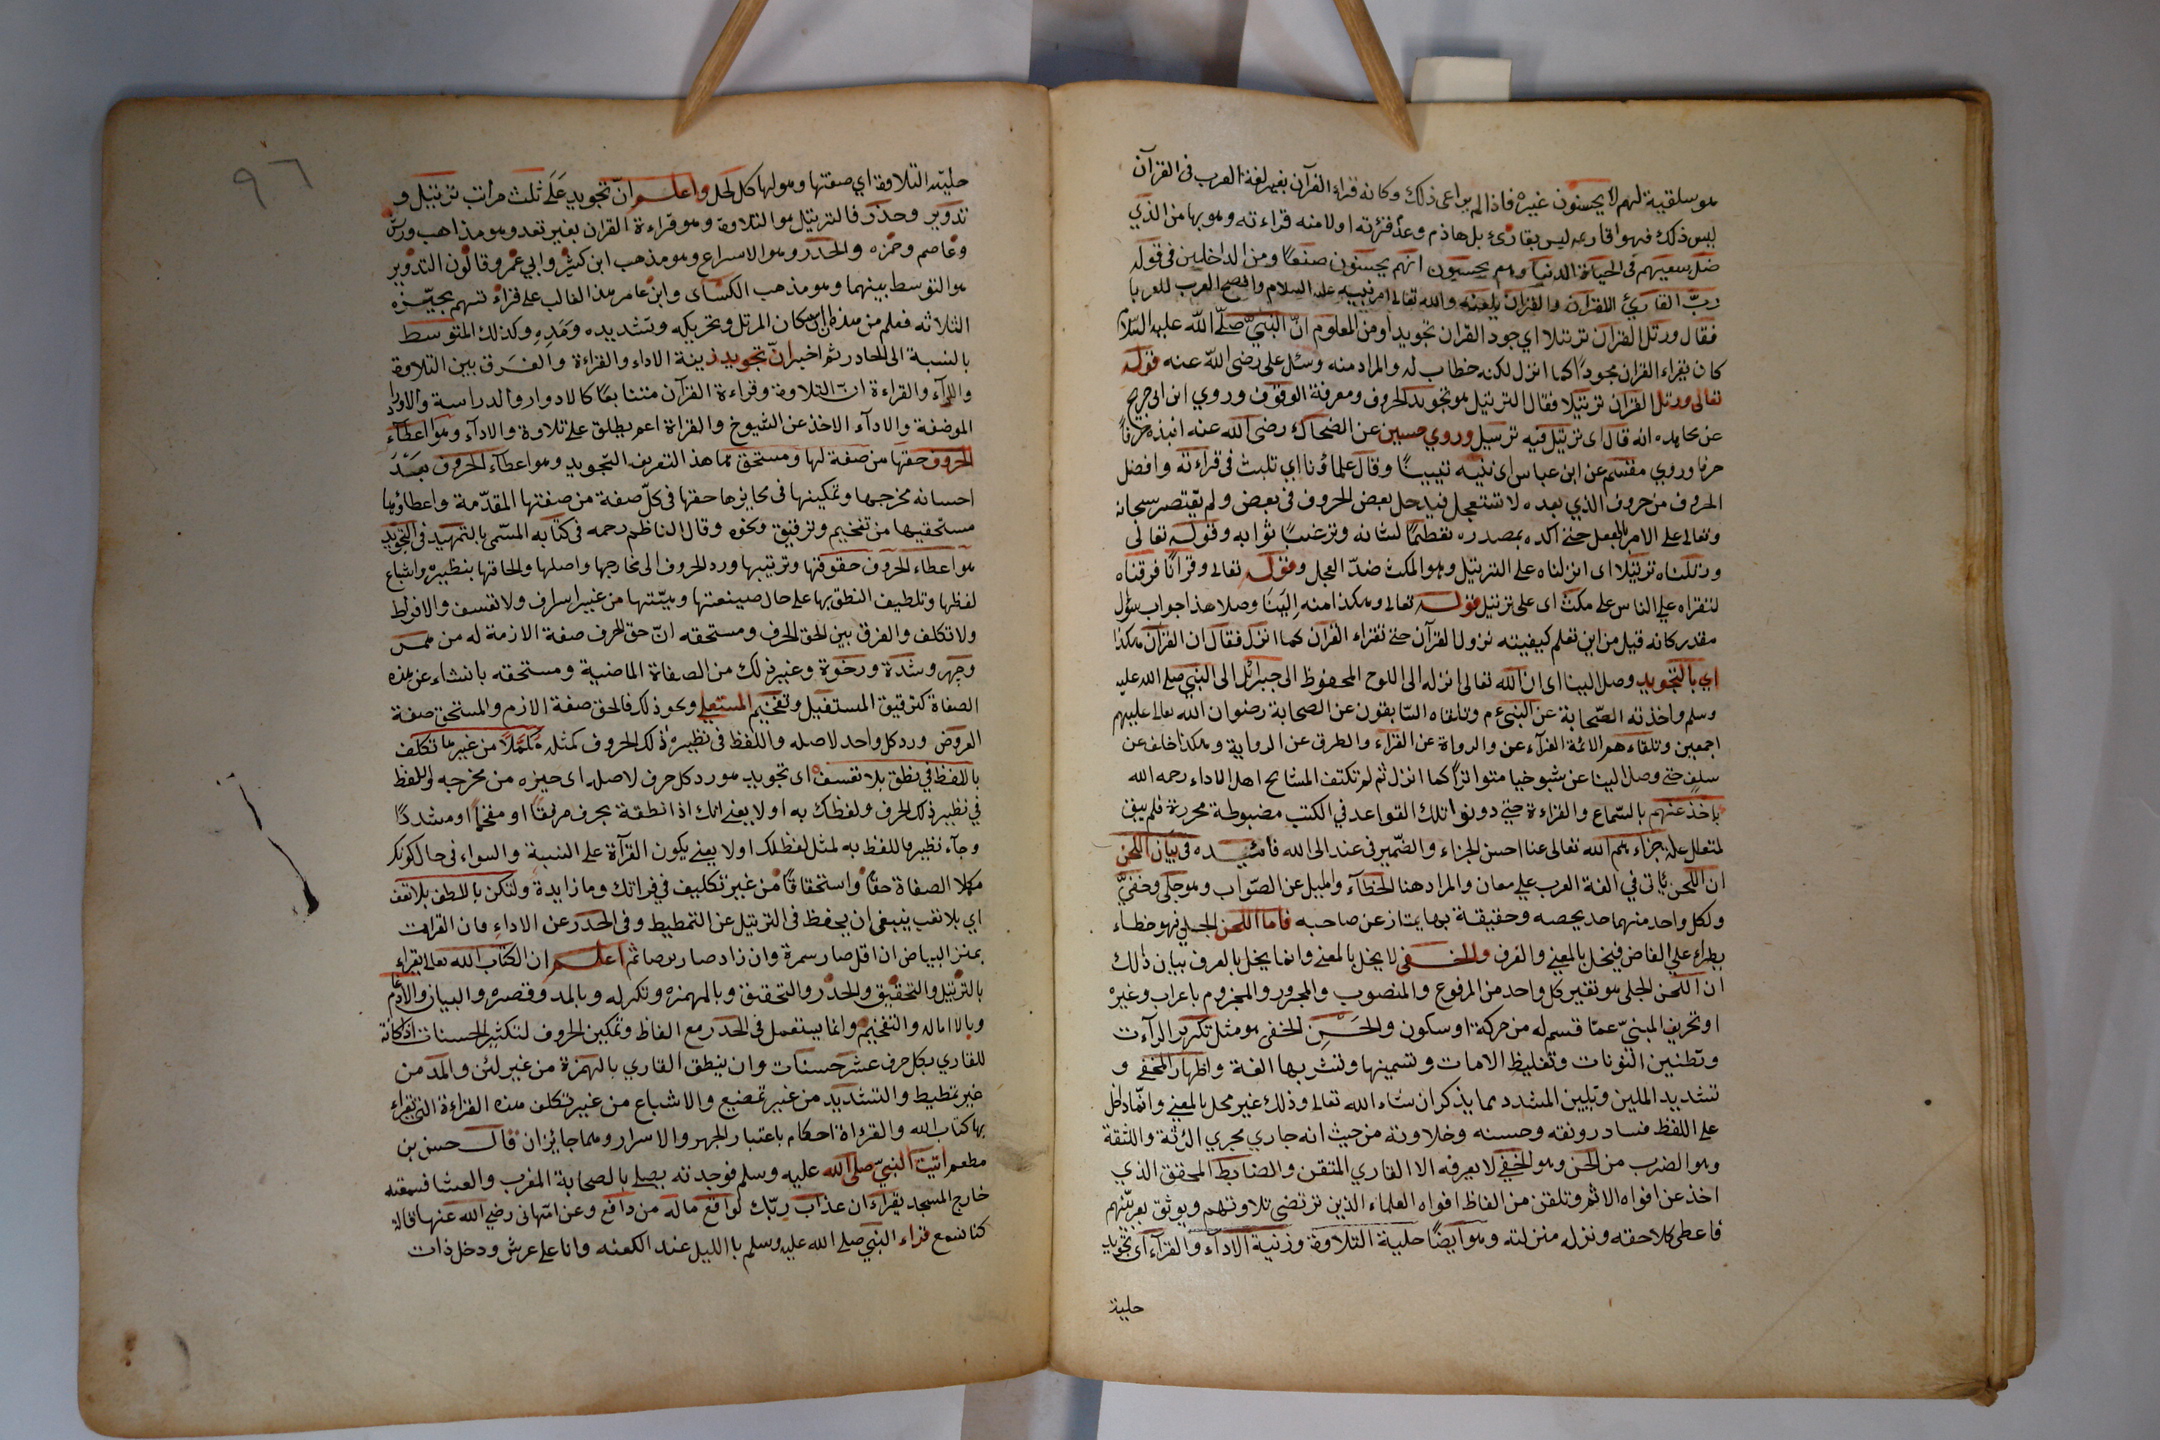 هو سلقية لهم لا يحسنون غيره فاذا لم يراعى ذلك وكانه قراء القرآن بغير لغة العرب فى القرآن
ليس ذلك فهو اقارىه ليس بقارئ بل هاذم وعد قرئته اولا منه قراءته وهو بها من الذي
ضل سعيهم فى الحياة الدنيا وهم يحسبون انهم يحسنون صنعًا ومن الداخلين فى قوله
ربّ القارئ للقران والقران يلعنه والله تعالى امر نبيه عليه السلام وافصح العرب للعربا
فقال ورتل القرآن ترتيلا اي جود القران تجويدا ومن المعلوم انّ النبىّ صلّى الله عليه السّلام
كان يقراء القران مجودًا كما انزل لكنه خطاب له والمراد منه وسئل على رضى الله عنه قوله
تعالى ورتل القران ترتيلا فقال الترتيل هو تجويد الحروف ومعرفة الوقوف وروي ابن ابى جريج
عن مجاهد انه قال اى ترتيل فيه ترسيل وروي حسين عن الضحاك رضى الله عنه انبذه حرفًا
حرفا وروي مقسم عن ابن عباس اى بينه تبيينًا وقال علماؤنا اي تلبث فى قراءته وافضل
الحروف من حروف الذي بعده لا تستعجل فيدخل بعض الحروف فى بعض ولم يقتصر سبحانه
وتعالى على الامر بالفعل حتى اكده بمصدره تعظيمًا لشانه وترغيبًا ثوابه وقوله تعالى
ورتلناه ترتيلا اى انزلناه على الترتيل وهو المكث ضدّ العجل وقوله تعالى وقرآنًا فرقناه
لتقراه على الناس على مكث اى على ترتيل قوله تعالى وهكذا منه الينا وصلا هذا جواب سؤل
مقدر كانه قيل من اين تعلم كيفيته نزول القرآن حتى تقراء القرآن كما انزل فقال ان القرآن هكذا
اي بالتجويد وصل الينا اى ان الله تعالى انزله الى اللوح المحفوظ الى جبرائل الى النبى صلى الله عليه
وسلم واخذته الصّحابة عن النبى ع م وتلقاه السّابقون عن الصحابة رضوان الله تعالى عليهم
اجمعين وتلقاء هم الائمة القرآء عن والرواة عن القراء والطرق عن الرواية وهكذا خلف عن
سلف حتى وصل الينا عن شيوخيا متواترًا كما انزل ثم لم تكتف المشايح اهل الاداء رحمه الله
باخذ عنهم بالسّماع والقراءة حتى دونوا تلك القواعد في الكتب مضبوطة محررة فلم يبق
لمتعلل علة جزاءهم الله تعالى عنا احسن الجزاء والضّمير فى عند الى الله فائـــده فى بيان اللحن
ان اللحن ياتى في الغة العرب على معان والمراد هنا الخطآء والميل عن الصّواب وهو جلى وخفىّ
ولكل واحد منهما حد يخصه وحقيقة بها يمتاز عن صاحبه فاما اللحن الجلى فهو خطاء
يطراء على الفاض فيخل بالمعني والعرف والخـفى لا يخل بالمعني وانما يخل بالعرف بيان ذلك
ان اللحن الجلى هو تغير كل واحد من المرفوع والمنصوب والمجرور والمجزوم باعراب وغيره
او تحريف المبنيّ عمّا قسم له من حركة او سكون واللحن الخفى هو مثل تكرير الرآءت
وتطنين النونات وتغليظ الامات وتسمينها وتشربها الغة واظهار المخفى و
تشديد الملين وتليين المشدد مما يذكر ان شاء الله تعالى وذلك غير مخل بالمعني وانّما دخل
على اللفظ فساد رونقه وحسنه وخلاوته من حيث انه جاري مجري الرثة واللثقة
وهو الضرب من اللحن وهو الخفي لا يعرفه الا القاري المتقن والضابط المحقق الذي
اخذ عن افواه الائمّ وتلقن من الفاظ افواه العلماء الذين ترتضى تلاوتهم ويوثق بعربيّتهم
فاعطى كلا حقه ونزله منزلته وهو ايضًا حلية التلاوة وزنية الاداء والقرآءة اى تجويد
حلية
٩٦
حليته التلاوة اي صفتها وهو لها كل لحل واعلـم انّ تجويد عَلَى ثلث مراتب ترتيل و
تدوير وحذر فالترتيل هو التلاوة وهو قراءة القران بغير تعد وهو مذاهب ورش
وعاصم وحمزه والحدر وهو الاسراع وهو مذهب ابن كثير وابي عمر وقالون التدوير
هو التوسط بينهما وهو مذهب الكسآى وابن عامر هذا الغالب على قراء تسهم يجيّزه
الثلاثه فعلم من هذه ان اسكان المرتل وتحريكه وتشديده ومَدِهِ وكذلك المتوسط
بالنسبة الى الحادر ثم اخبر انّ تجويد زينة الاداء والقراءة والفرق بين التلاوة
والادآء والقراءة انّ التلاوة وقراءة القرآن متتابعًا كالادوار والدراسة والاوراد
الموضفة والادآء الاخذ عن الشيوخ والقراة اعم يطلق على تلاوة والادآء وهو اعطآء
الحروف حقها من صفة لها ومستحق مما هذا التعريف التّجويد وهو اعطآء الحروف بعَدَ
احسانه مخرجها وتمكينها فى محايزها حقها فى كلّ صفة من صفتها المقدّمة واعطاؤها
مستحقيها من تفخيم وترقيق ونحوه وقال الناظم رحمه فى كتابه المسمّى بالتمهيد فى التجويد
هو اعطاء الحروف حقوقها وترتيبها ورد الحروف الى مخارجها واصلها والحاقها بنظيره واشباع
لفظها وتلطيف النطق بها على حال صيغتها وهيّتها من غير اسراف ولا تعسف والافراط
ولا تكلف والفرق بين الحق الحرف ومستحقه انّ حق الحرف صفة الازمة له من همس
وجهر وشدة ورخوة وغير ذلك من الصفاة الماضية ومستحقه بانشاء عن هذه
الصفاة كترقيق المستفيل وتفخيم المستعلى ونحو ذلك فالحق صفة الازم والمستحق صفة
العروض ورد كل واحد لاصله واللفظ فى نظيره ذلك الحروف كمثله مُكَمَّلًا من غير ما تكلف
باللفظ في نطق بلا تعسف اى تجويد هو رد كل حرف لاصله اى حيزه من مخرجه واللفظ
في نظير ذلك الحرف ولفظك به اولا يعني انك اذا نطقة بحرف مرققًا او مفخمًا او مشددًا
وجآء نظيره اللفظ به لمثل لفظلك اولا يعنى يكون القرآة على النسبة والسواء فى حال كونك
مكملا الصفاة حقًا واستحقاقًا من غير تكليف في قراتك وما زايدة ولتكن باللطف بلا تعف
اي بلا تعب ينبغى ان يحفظ فى الترتيل عن التمطيط وفى الحدر عن الاداء فان القراءت
بمنز البياض ان اقل صار سمرة وان زاد صار برصا ثم اعلـم ان الكتاب الله تعالى يقراء
بالترتيل والتحقيق والحدر والتحقيق وبالهمزه وتكرله وبالمد وقصره والبيان والادغام
وبالاماله والتفخيم وانما يستعمل فى الحدر مع الفاظ وتمكين الحروف لتكثير الحسنات اذ كانه
للقاري بكل حرف عشر حسنات وان ينطق القاري بالهمزة من غير لئن والمد من
غير تمطيط والتشديد من غير تمضيع والاشباع من غير تكلف هذه القراءة التى تقراء
بها كتاب الله والقرءاة احكام باعتبار الجهر والاسرار وهما جايزان قال حسن بن
مطعم اتيت النبىّ صلى الله عليه وسلم فوجدته يصلى بالصحابة المغرب والعشا فسمعته
خارج المسجد يقراء ان عذاب ربّك لواقع ماله من دافع وعن امّهانى رضى الله عنها قالة
كنا نسمع قراء النبي صلى الله عليه وسلم باالليل عند الكعنه وانا على عرش ودخل ذات